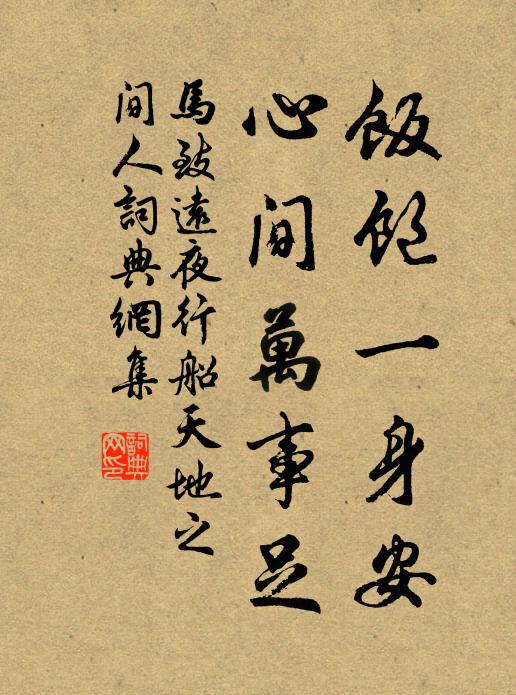 飯飽一身安
心間萬事足
馬致遠夜行船天地之
間人詞典網集
詞典
網印